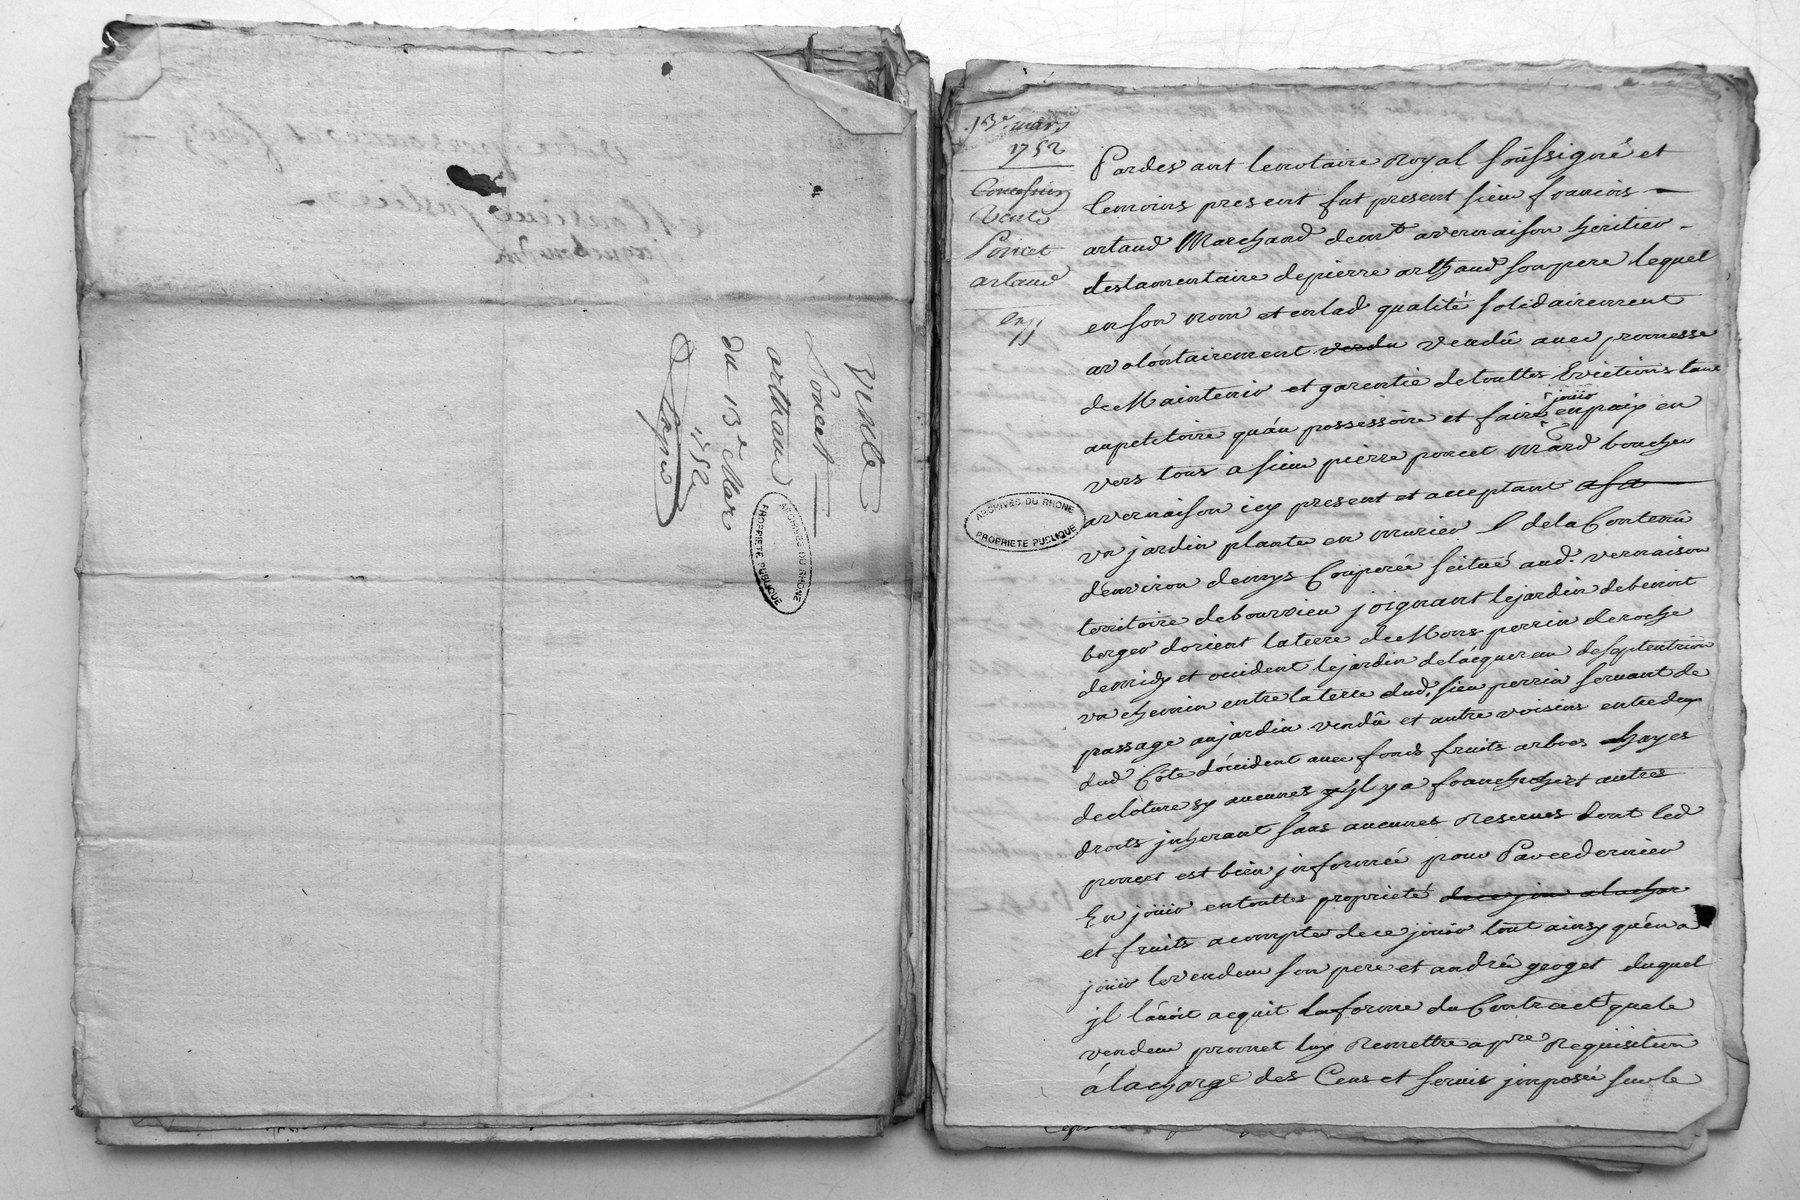 Vente
Poncet
arthaud
du 13e Mar
1752
ARCHIVES DU RHONE
PROPRIETE PUBLIQUE
13e mars
1752
Vente
Poncet
artaud
ARCHIVES DU RHONE
PROPRIETE PUBLIQUE
Pardevant le notaire Royal soussigné et
temoins present fut present sieur francois
artaud Marchand demt a vernaison heritier
testamentaire de pierre arthaud son pere lequel
en son nom et en lad qualité solidairement
a volontairement vendu vendû avec promesse
de Maintenir et garentie de touttes Evictions tant
au petitoire qu'au possessoire et faire jouir en paix en
vers tous a sieur pierre poncet mard boucher
a vernaison icy present et acceptant a sa
un jardin planté en murier de la Contenû
d'environ demys Couperée scitué aud. vernaison
territoire de bourrieu joignant le jardin de benoit
berger d'orient la terre de Mons perrin de roche
de midy et occident le jardin de lacquereur de septentrion
un chemin entre la terre dud. sieur perrin servant de
passage au jardin vendû et autre voisins entredeux
dud Côté d'occident avec fonds fruits arbres hayes
de cloture sy aucunes jl y a franchises et autres
droits jnherant sans aucunes Reserves dont led
poncet est bien jnformée pour Par ce dernier
En jouir en touttes proprieté
et fruits a compter de ce jour tout ainsy qu'en a
jouir le vendeur son pere et andré geoget duquel
jl l'avoit acquit la forme du Contract que le
vendeur promet luy Remettre a pre Requisition
á la charge des Cens et servis jmposé sur le